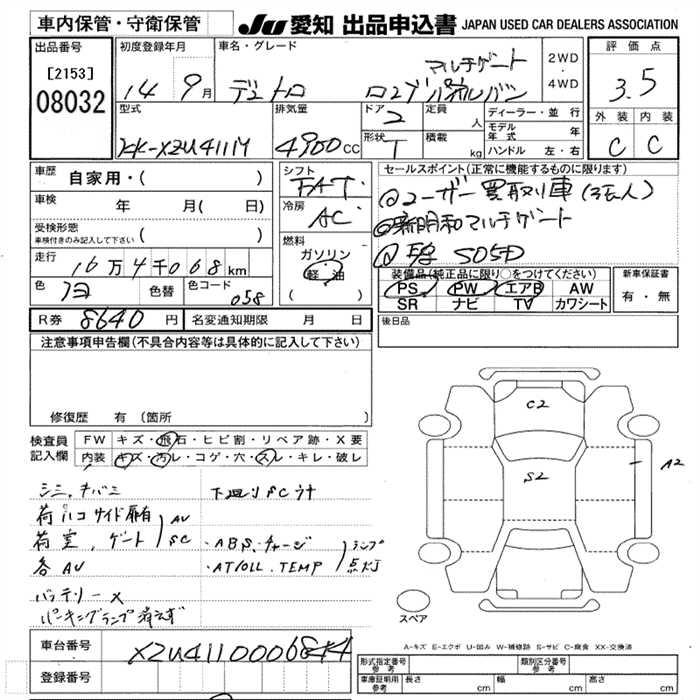 車内保管・守衛保管
JU 愛知 出品申込書 JAPAN USED CAR DEALERS ASSOCIATION
出品番号
[2153]
08032
初度登録年月
14 9月
車名・グレード
デュトロ ロング パネルバン
マルチゲート
2WD
・
4WD
評価点
3.5
外装 内装
C C
型式
KK-XZU411M
排気量
4900CC
ドア 2
形状 T
定員 人
積載 kg
ディーラー・並行
モデル年式 年
ハンドル 左・右
車歴 自家用・( )
車検 年 月( 日)
受検形態
車検付きのみ記入して下さい ( )
走行 16万4千068km
色 色替 色コード 058
R券 8640円 名変通知期限 月 日
シフト
FAT
冷房
AC
燃料
ガソリン
軽油
( )
セールスポイント(正常に機能するものに限ります)
ユーザー買取り車
新明和マルチゲート
S05D
装備品(純正品に限り○をつけてください)
PS PW エアB AW
SR ナビ TV カワシート
新車保証書
有・無
後日品
注意事項申告欄(不具合内容等は具体的に記入して下さい)
修復歴 有(箇所 )
検査員記入欄
FW キズ・飛石・ヒビ割・リペア跡・X要
内装 キズ・汚レ・コゲ・穴・スレ・キレ・破レ
下廻りSCサ
荷ハコサイド扉有
荷室、ゲート
AU
SC
各AU
・ABS.チャージ
・AT/OLL.TEMP
ランプ
点灯
バッテリーX
パーキングランプ消えず
C2
S2
A2
スペア
A-キズ E-エクボ U-凹み W-補修跡 S-サビ C-腐食 XX-交換済
車台番号 XZU411 0006844
登録番号
形式指定番号
参考
類別区分番号
参考
車庫証明用
参考
長さ cm 幅 cm 高さ cm